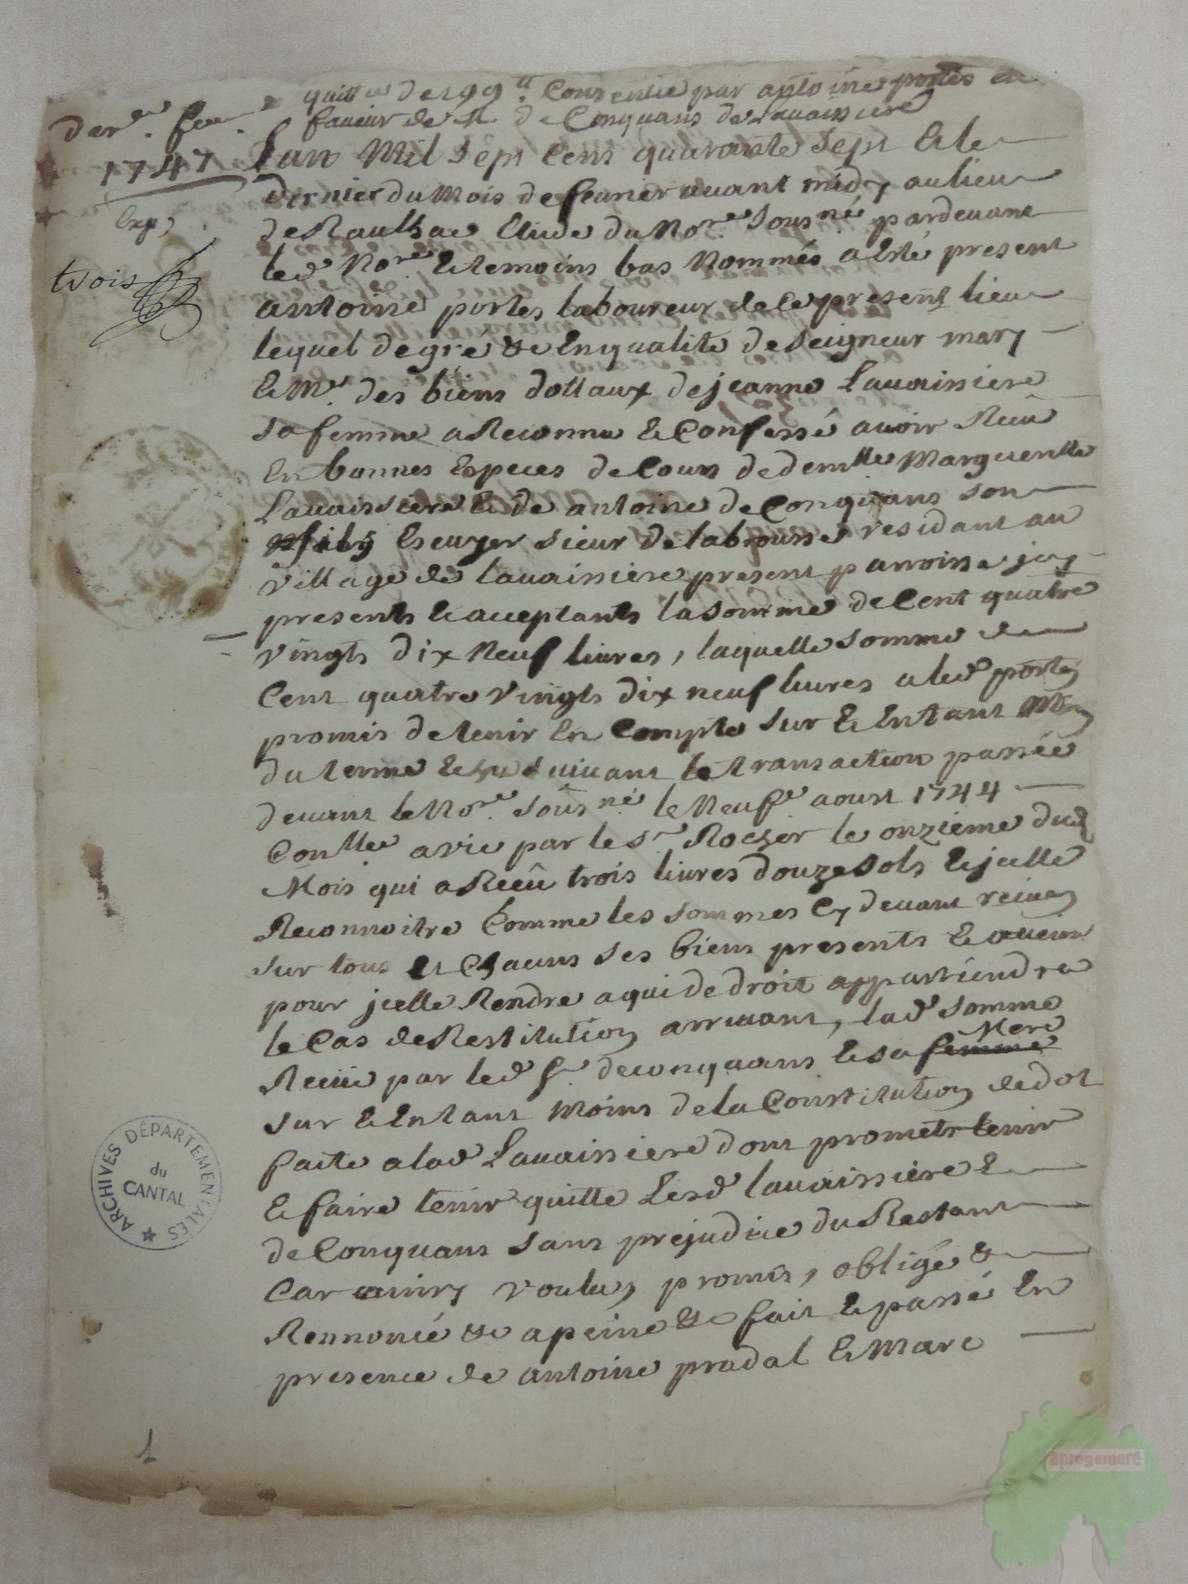 quittce de 199 ll Consentie par antoine portes en
faveur de Mr de Conquans de Lavaissiere
der. fev.
1747
Exp
trois
L'an Mil sept Cent quarante sept & le
dernier du Mois de fevrier avant midy au lieu
de Raulhac Etude du Nore. Sousné. pardevant
led Nore & temoins bas Nommés a esté present
antoine portes laboureur de Ce present lieu
lequel de gré &c En qualité de seigneur mary
& Me. des biens dottaux de jeanne Lavaissiere
sa femme a Reconnu & Confessé avoir Reçu
En bonnes Especes de Cours de demlle Marguerite
Lavaissiere & de antoine de Conquans son
fils Escuyer sieur de labrousse residant au
village de lavaissiere present parroisse jcy
presents & acceptants la somme de Cent quatre
vingts dix Neuf livres, laquelle somme de
Cent quatre vingts dix neuf livres aled portes
promis de tenir En Compte sur & Entant Ms
du terme & suivant le transaction passée
devant le Nore. Sousné. le Neufe aoust 1744
Conllee a vic par le Sr Rocher le onzieme dud
Mois qui a Reçu trois livres douze sols & jcelle
Reconnoitre Comme les sommes Cy devant reçues
sur tous & Chacuns ses biens presents & avenir
pour jcelle Rendre a qui de droit appartiendra
le Cas de Restitution arrivant, lad somme
Reçue par led Sr deconquans & sa femme Mere
sur & Entant Moins de la Constitution de dot
faite a lad Lavaissiere dont promets tenir
& faire tenir quitte Lesd lavaissiere &
de Conquans sans prejudice du Restant
Car ainsy voulu, promis, obligé &
Rennoncé &c a peine &c fait & passé En
presence de antoine pradal & Marc
1
ARCHIVES DÉPARTEMENTALES
du
CANTAL
aprogemere